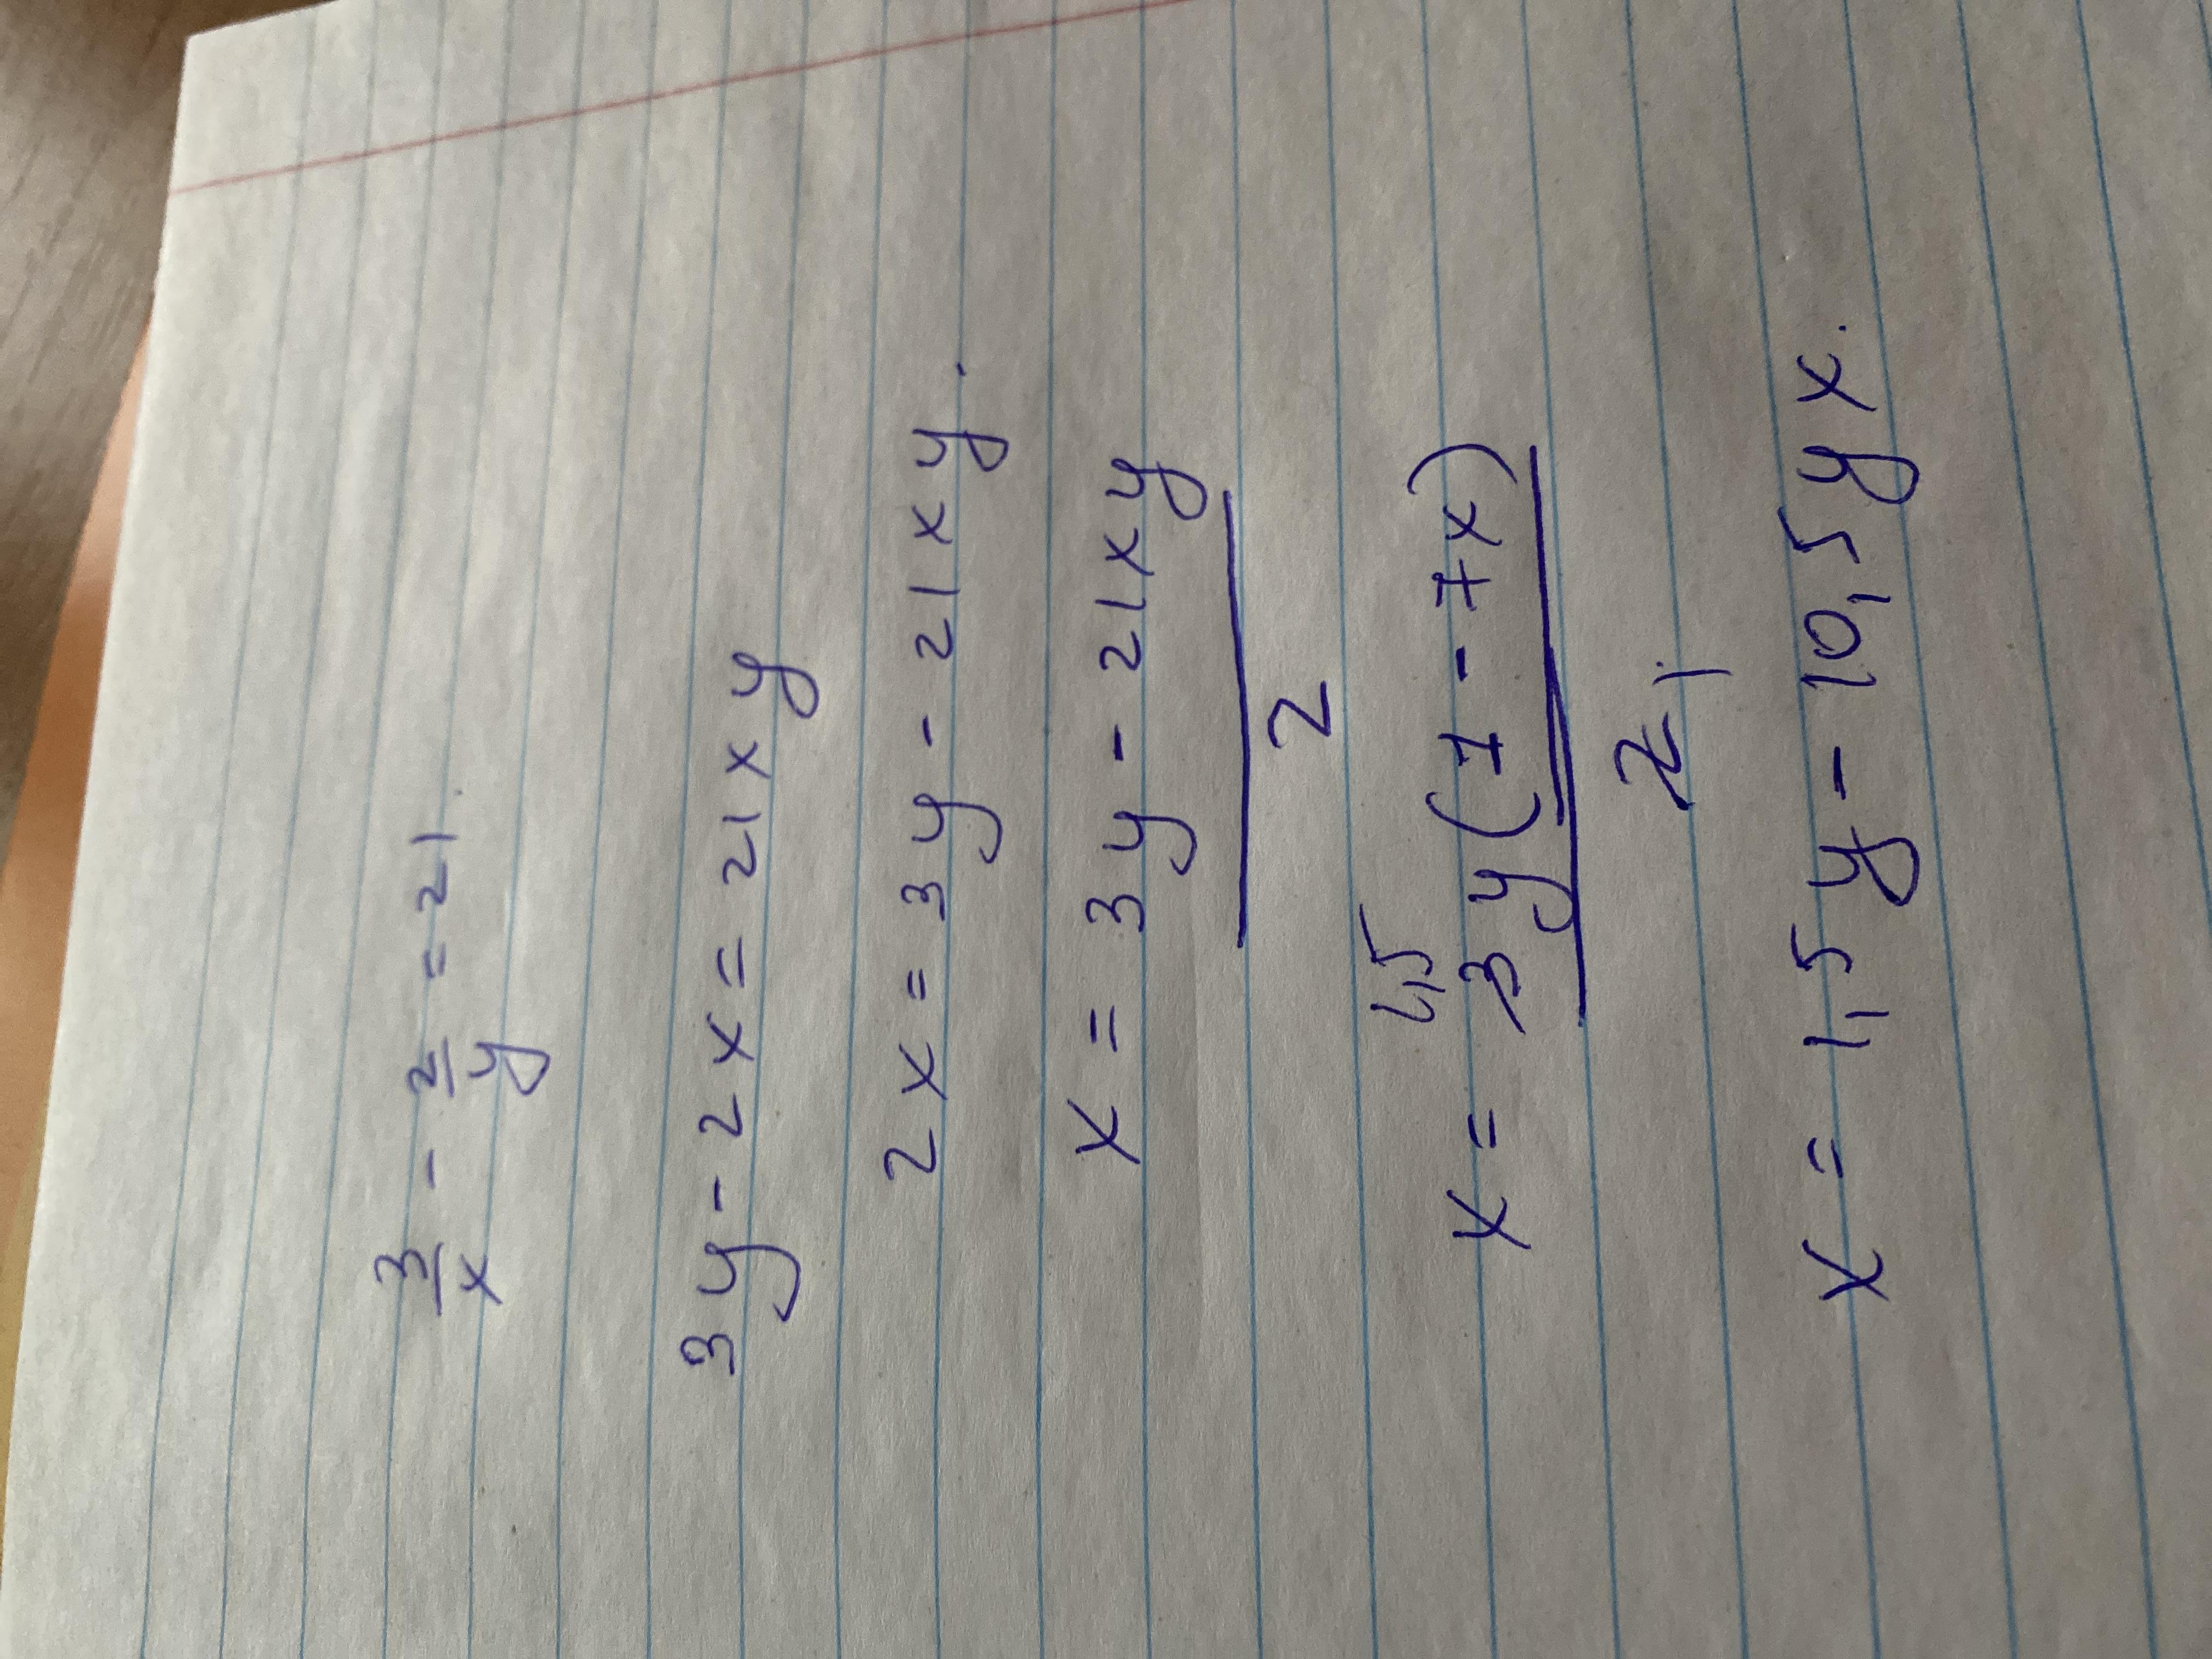 3/x - 2/y = 21.
3y - 2x = 21xy
2x = 3y - 21xy.
x = 3y - 21xy
2
1,5
x = 3y(1 - 7x)
2 1
x = 1,5y - 10,5yx.